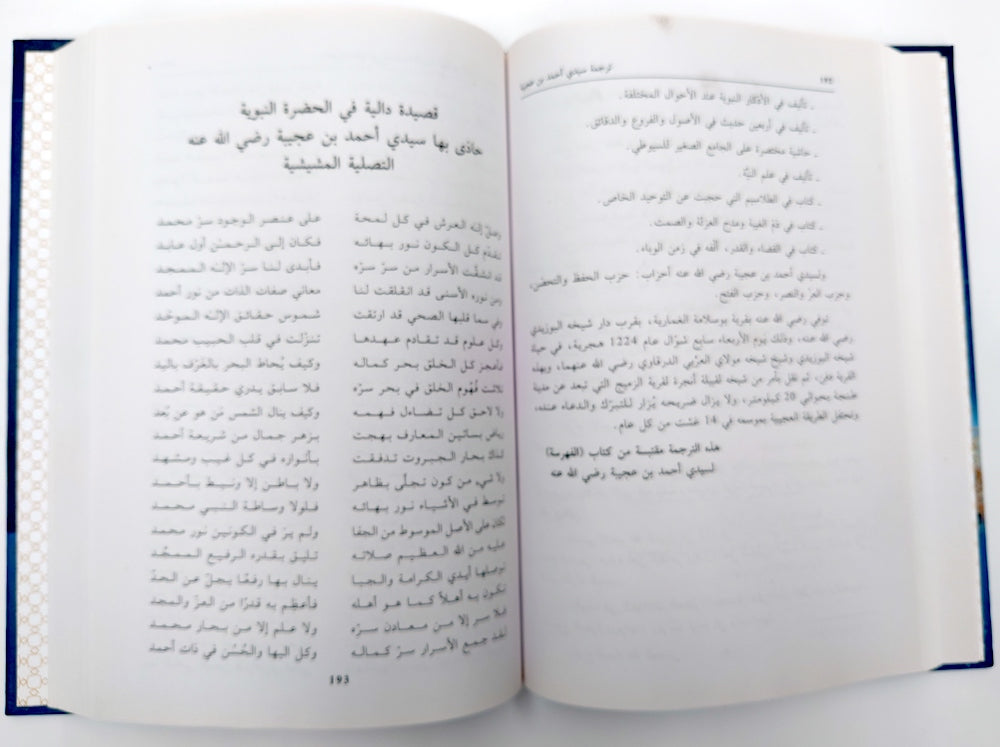 ترجمة سيدي أحمد بن عجيبة
١٩٢
ـ تأليف في الأذكار النبوية عند الأحوال المختلفة.
ـ تأليف في أربعين حديث في الأصول والفروع والدقائق.
ـ حاشية مختصرة على الجامع الصغير للسيوطي.
ـ تأليف في علم النيّة.
ـ كتاب في الطلاسيم التي حجبت عن التوحيد الخاص.
ـ كتاب في ذمّ الغيبة ومدح العزلة والصمت.
ـ كتاب في القضاء والقدر، ألّفه في زمن الوباء.
ولسيدي أحمد بن عجيبة رضي الله عنه أحزاب: حزب الحفظ والتحصّن،
وحزب العزّ والنصر، وحزب الفتح.
توفي رضي الله عنه بقرية بوسلامة الغمارية، بقرب دار شيخه البوزيدي
رضي الله عنه، وذلك يوم الأربعاء سابع شوّال عام 1224 هجرية، في حياة
شيخه البوزيدي وشيخ شيخه مولاي العربي الدرقاوي رضي الله عنهما، وبهذه
القرية دفن، ثم نقل بأمر من شيخه لقبيلة أنجرة لقرية الزميج التي تبعد عن مدينة
طنجة بحوالي 20 كيلومتر، ولا يزال ضريحه يُزار للتبرّك والدعاء عنده،
وتحتفل الطريقة العجيبية بموسمه في 14 غشت من كل عام.
هذه الترجمة مقتبسة من كتاب (الفهرسة)
لسيدي أحمد بن عجيبة رضي الله عنه
قصيدة دالية في الحضرة النبوية
حاذى بها سيدي أحمد بن عجيبة رضي الله عنه
التصلية المشيشية
وصلّ إله العرش في كل لمحة على عنصر الوجود سرّ محمد
تقدّم كل الكون نور بهائه فكان إلى الرحمٰن أول عابد
قد انشقّت الأسرار من سرّ سرّه فأبدى لنا سرّ الإلٰه الممجد
ومن نوره الأسنى قد انفلقت لنا معاني صفات الذات من نور أحمد
وفي سما قلبها الصحي قد ارتقت شموس حقائق الإلٰه الموحّد
وكل علوم قد تقادم عهدها تنزّلت في قلب الحبيب محمد
فأعجز كل الخلق بحر كماله وكيف يُحاط البحر بالغَرْف باليد
تلاشت فُهوم الخلق في بحر سرّه فلا سابق يدري حقيقة أحمد
ولا لاحق كل تضاءل فهمه وكيف ينال الشمس مَن هو عن بُعد
رياض بساتين المعارف بهجت بزهر جمال من شريعة أحمد
لذاك بحار الجبروت تدفقت بأنواره في كل غيب ومشهد
ولا شيء من كون تجلّى بظاهر ولا باطن إلا ونيط بأحمد
توسط في الأشياء نور بهائه فلولا وساطة النبي محمد
لكان على الأصل الموسوط من الخفا ولم يرَ في الكونين نور محمد
عليه من الله العظيم صلاته تليق بقدره الرفيع الممجّد
توصلها أيدي الكرامة والحبا ينال بها رفعًا يجلّ عن الحدّ
تكون به أهلاً كما هو أهله فأعظِم به قدرًا من العزّ والمجد
فلا سر إلا من معادن سرّه ولا علم إلا من بحار محمد
لقد جمع الأسرار سرّ كماله وكل البها والحُسْن في ذات أحمد
193